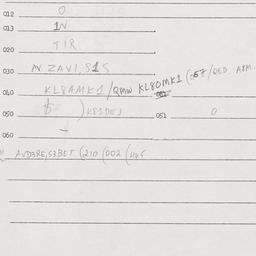 012 O
013 IN
020 TIR
030 N ZAVI, S1S
040 KL8AMK1/QMW KL8OMK1 (057/QED ARM.
050 ) K81DEJ 051 O
060 -
AVD3RE,S3BET (210 (002 (